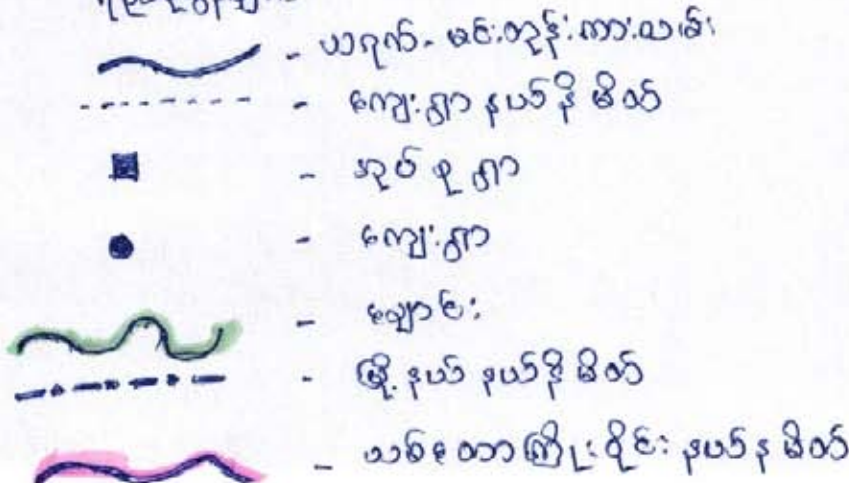 - ယာရက် - မင်းတုန်းကားလမ်း
- ကျေးရွာ နယ်နိမိတ်
- အုပ်စုရွာ
- ကျေးရွာ
- ချောင်း
- မြို့နယ် နယ်နိမိတ်
- သစ်တောကြိုးဝိုင်း နယ်နမိတ်